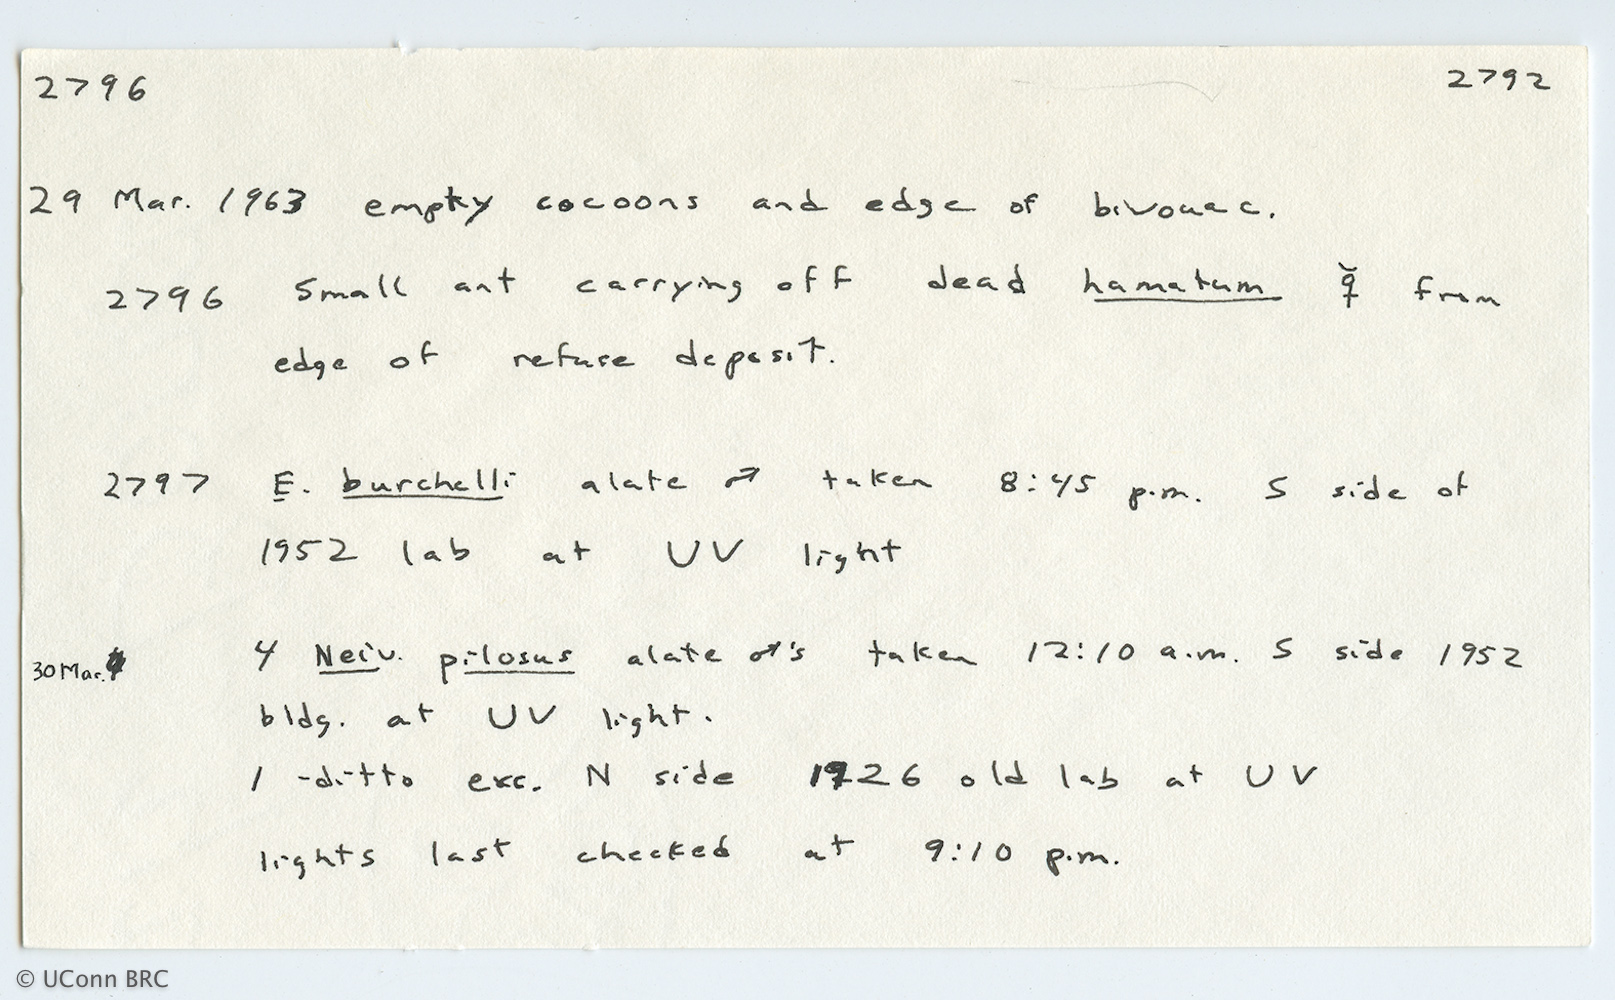 2796 2792
29 Mar. 1963 empty cocoons and edge of bivouac.
2796 Small ant carrying off dead hamatum ☿ from
edge of refuse deposit.
2797 E. burchelli alate ♂ taken 8:45 p.m. S side of
1952 lab at UV light
30 Mar. 4 Neiv. pilosus alate ♂'s taken 12:10 a.m. S side 1952
bldg. at UV light.
1 -ditto exc. N side 1926 old lab at UV
lights last checked at 9:10 p.m.
© UConn BRC